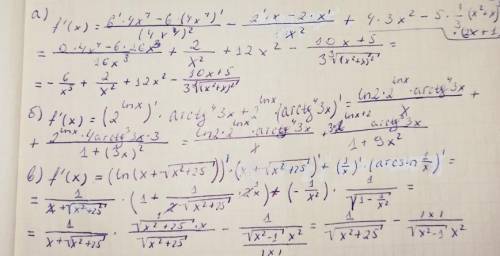 а) f'(x) = (6'·4x⁴ - 6(4x⁴)')/(4x⁴)² - (2'·x - 2·x')/x² + 4·3x² - 5·1/3 (x²+x)
·(2x+1)
= (0·4x⁴ - 6·16x³)/16x³ + 2/x² + 12x² - (10x+5)/(3∛((x²+5)²)) =
= -6/x³ + 2/x² + 12x² - (10x+5)/(3∛((x²+5)²))
б) f'(x) = (2^(lnx))'·arctg⁴3x + 2^(lnx)·(arctg⁴3x)' = (ln2·2^(lnx)·arctg⁴3x)/x +
+ (2^(lnx)·4arctg³3x·3)/(1+(3x)²) = (ln2·2^(lnx)·arctg⁴3x)/x · (3·2^(lnx+2) arctg³3x)/(1+9x²)
в) f'(x) = (ln(x+√(x²+25))'·(x+√(x²+25))' + (1/x)'·(arcsin 1/x)' =
= 1/(x+√(x²+25))·(1 + 1/(2√(x²+25))·2x) + (-1/x²)·1/√(1-1/x²) =
= 1/(x+√(x²+25))·(√(x²+25)+x)/√(x²+25) - 1/(√(x²-1) x²/|x|) = 1/√(x²+25) - |x|/(√(x²-1) x²)